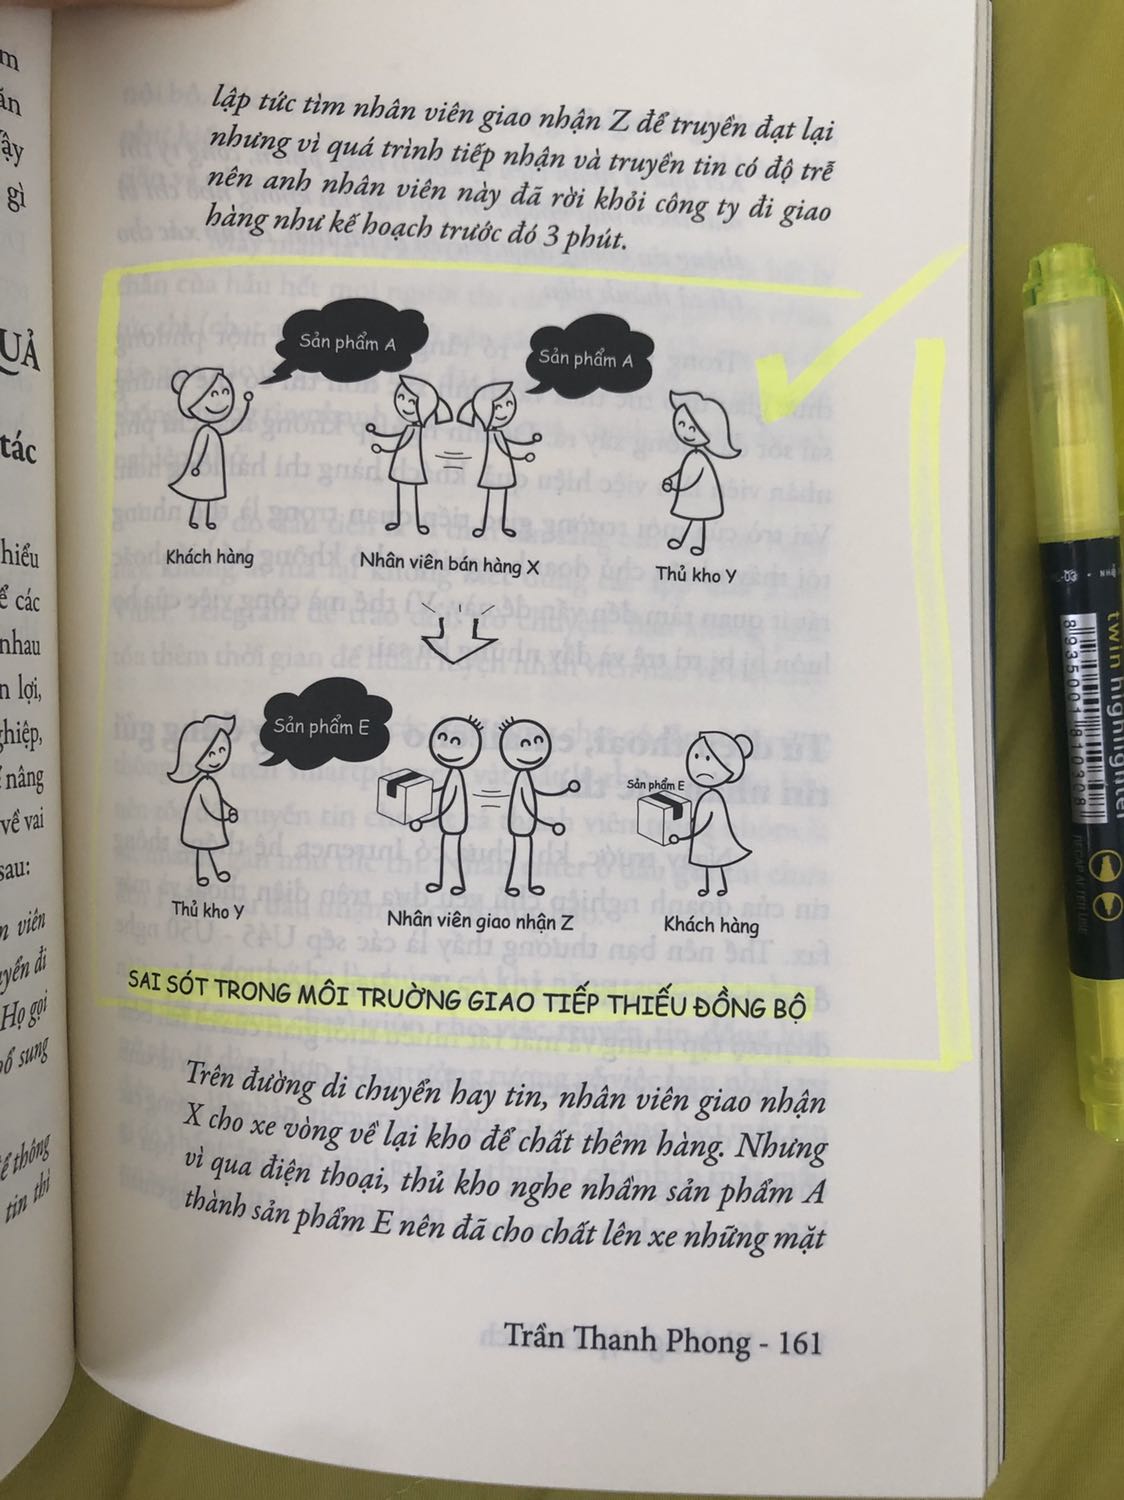 lập tức tìm nhân viên giao nhận Z để truyền đạt lại
nhưng vì quá trình tiếp nhận và truyền tin có độ trễ
nên anh nhân viên này đã rời khỏi công ty đi giao
hàng như kế hoạch trước đó 3 phút.
Sản phẩm A
Sản phẩm A
Khách hàng
Nhân viên bán hàng X
Thủ kho Y
Sản phẩm E
Sản phẩm E
Thủ kho Y
Nhân viên giao nhận Z
Khách hàng
SAI SÓT TRONG MÔI TRUỜNG GIAO TIẾP THIẾU ĐỒNG BỘ
Trên đường di chuyển hay tin, nhân viên giao nhận
X cho xe vòng về lại kho để chất thêm hàng. Nhưng
vì qua điện thoại, thủ kho nghe nhầm sản phẩm A
thành sản phẩm E nên đã cho chất lên xe những mặt
Trần Thanh Phong - 161
gì
tác
các
nhau
lợi,
nâng
về vai
sau:
viên
Họ gọi
sung
thông
tin thì
twin highlighter
8935001810308